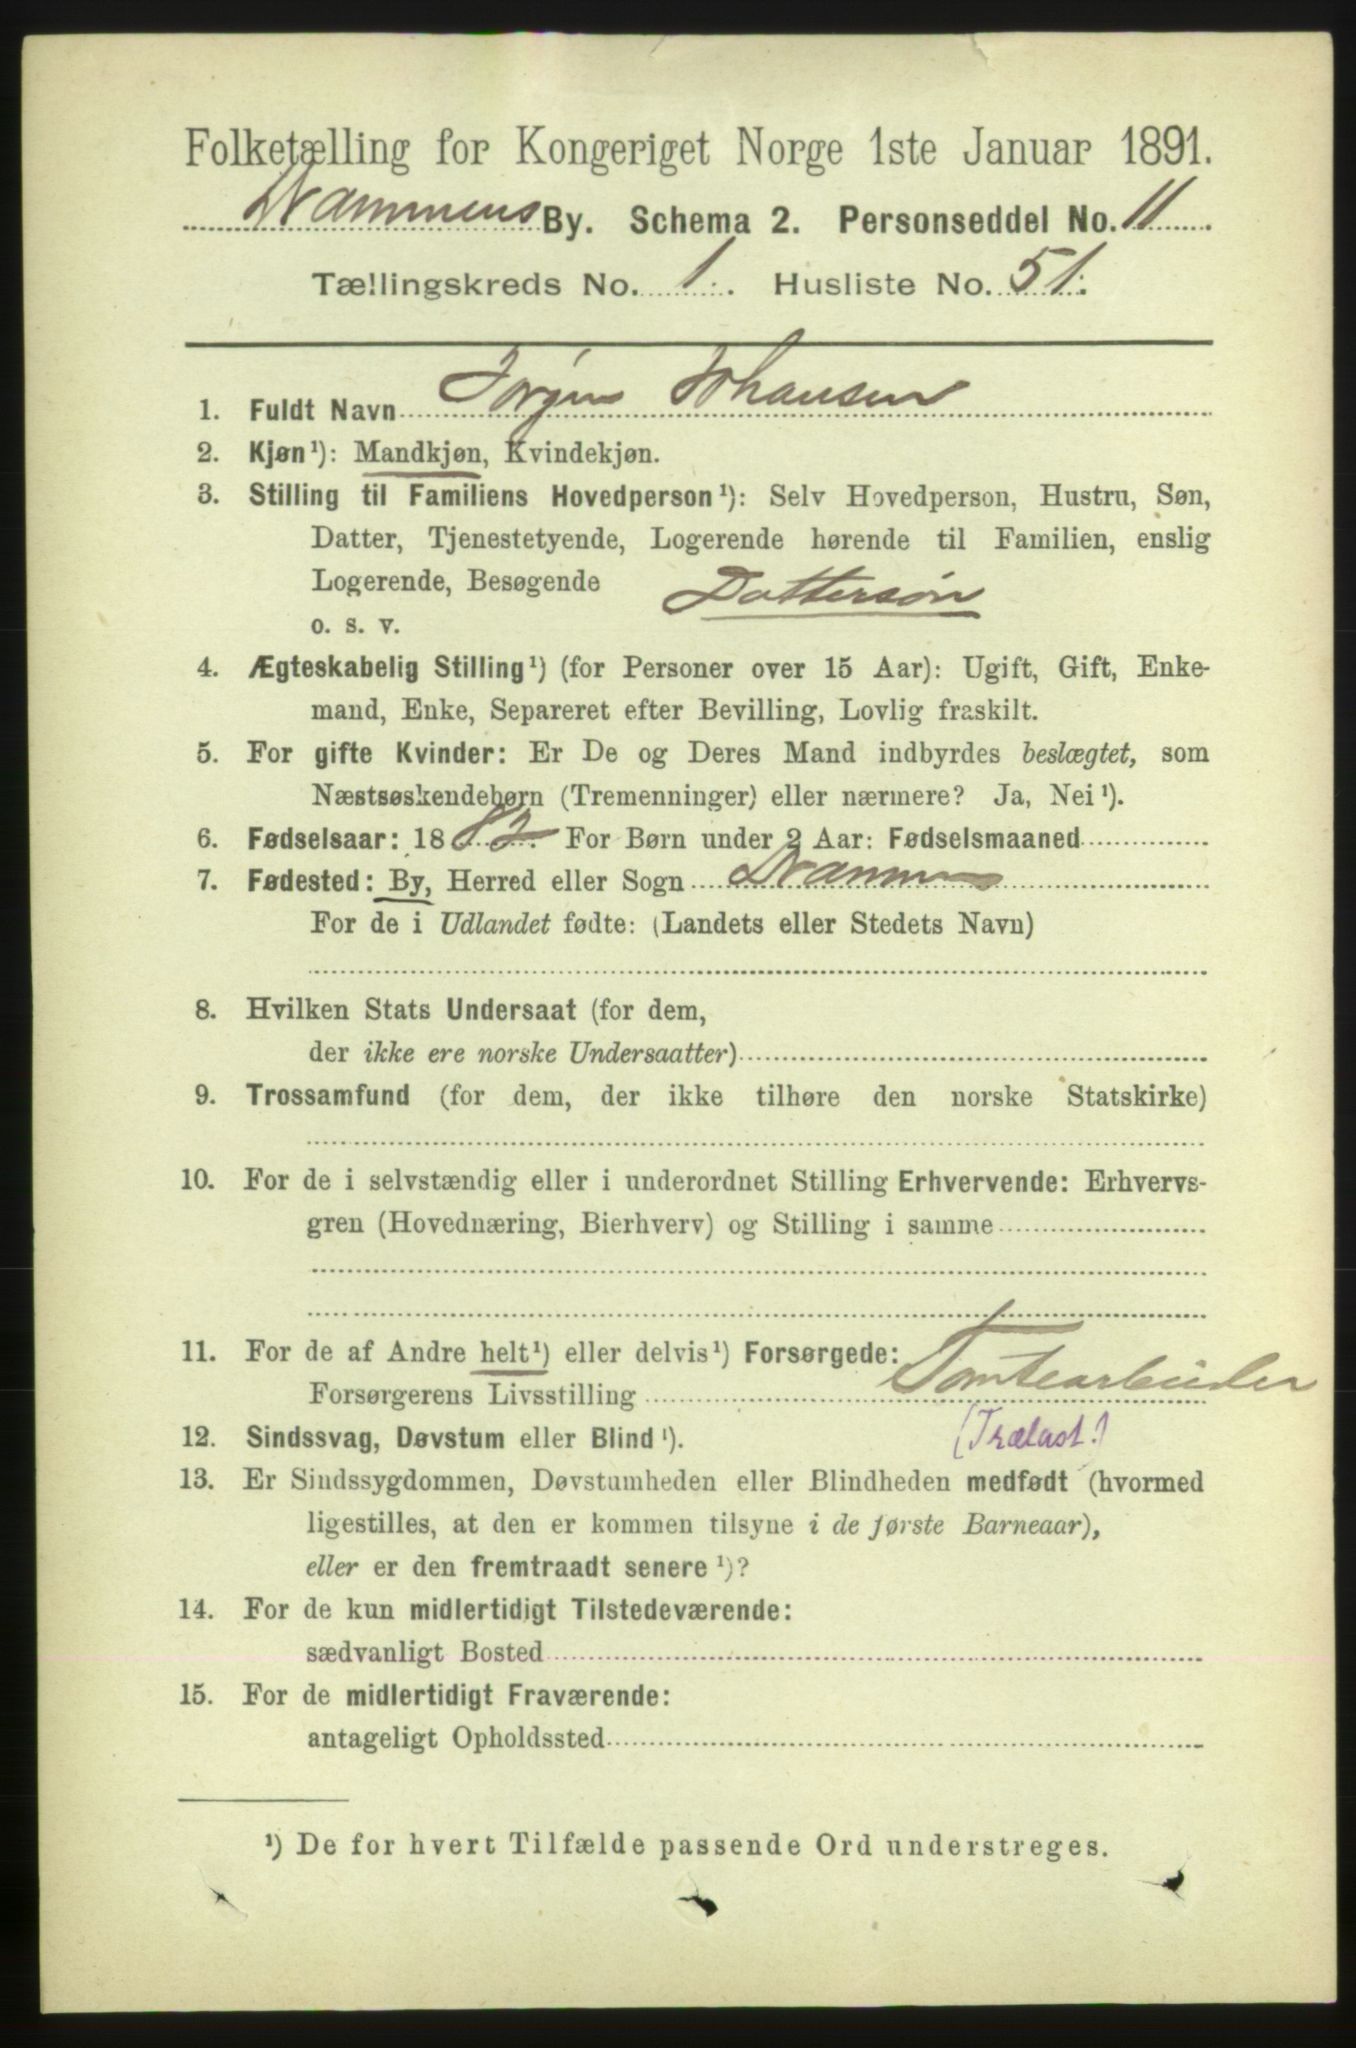 Folketælling for Kongeriget Norge 1ste Januar 1891.
Drammens By. Schema 2. Personseddel No. 11
Tællingskreds No. 1. Husliste No. 51.
1. Fuldt Navn Jørgen Johansen
2. Kjøn¹): Mandkjøn, Kvindekjøn.
3. Stilling til Familiens Hovedperson¹): Selv Hovedperson, Hustru, Søn,
Datter, Tjenestetyende, Logerende hørende til Familien, enslig
Logerende, Besøgende Dattersøn
o. s. v.
4. Ægteskabelig Stilling¹) (for Personer over 15 Aar): Ugift, Gift, Enke-
mand, Enke, Separeret efter Bevilling, Lovlig fraskilt.
5. For gifte Kvinder: Er De og Deres Mand indbyrdes beslægtet, som
Næstsøskendebørn (Tremenninger) eller nærmere? Ja, Nei¹).
6. Fødselsaar: 1882. For Børn under 2 Aar: Fødselsmaaned
7. Fødested: By, Herred eller Sogn Drammen
For de i Udlandet fødte: (Landets eller Stedets Navn)
8. Hvilken Stats Undersaat (for dem,
der ikke ere norske Undersaatter)
9. Trossamfund (for dem, der ikke tilhøre den norske Statskirke)
10. For de i selvstændig eller i underordnet Stilling Erhvervende: Erhvervs-
gren (Hovednæring, Bierhverv) og Stilling i samme
11. For de af Andre helt¹) eller delvis¹) Forsørgede:
Forsørgerens Livsstilling Tomtearbeider
12. Sindssvag, Døvstum eller Blind¹). (Trælast.)
13. Er Sindssygdommen, Døvstumheden eller Blindheden medfødt (hvormed
ligestilles, at den er kommen tilsyne i de første Barneaar),
eller er den fremtraadt senere¹)?
14. For de kun midlertidigt Tilstedeværende:
sædvanligt Bosted
15. For de midlertidigt Fraværende:
antageligt Opholdssted
¹) De for hvert Tilfælde passende Ord understreges.